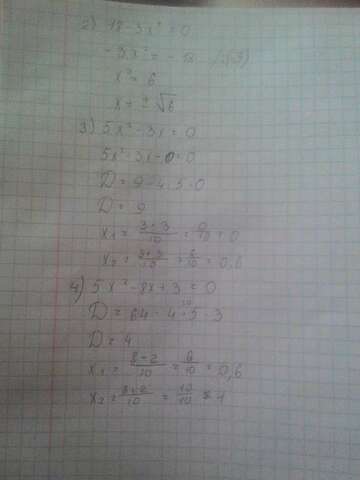 2) 18-3x²=0
-3x²=-18 /:(-3)
x²=6
x=±√6
3) 5x²-3x=0
5x²-3x-0=0
D=9-4·5·0
D=9
x₁=3-3/10=0/10=0
x₂=3+3/10=6/10=0,6
4) 5x²-8x+3=0
D=64-4·5·3
D=4
x₁=8-2/10=6/10=0,6
x₂=8+2/10=10/10=1